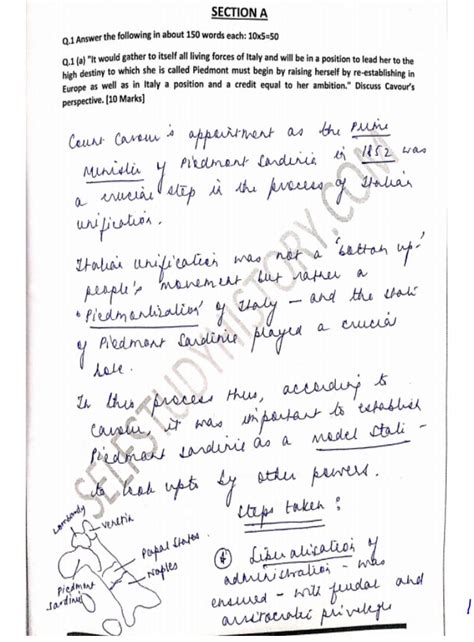 SECTION A
Q.1 Answer the following in about 150 words each: 10x5=50
Q.1 (a) "It would gather to itself all living forces of Italy and will be in a position to lead her to the
high destiny to which she is called Piedmont must begin by raising herself by re-establishing in
Europe as well as in Italy a position and a credit equal to her ambition." Discuss Cavour's
perspective. [10 Marks]
Count Cavour's appointment as the Prime
Minister of Piedmont Sardinia in 1852 was
a crucial step in the process of Italian
unification.
Italian unification was not a 'bottom up'
people's movement but rather a
'Piedmontization' of Italy – and the state
of Piedmont Sardinia played a crucial
role.
In this process thus, according to
Cavour, it was important to establish
Piedmont Sardinia as a model state -
to look upto by other powers.
Steps taken :
Lombardy
Venetia
Papal States
Naples
Piedmont
Sardinia
Liberalisation of
administration - was
ensured - with feudal and
aristocratic privileges
SELFSTUDYHISTORY.COM